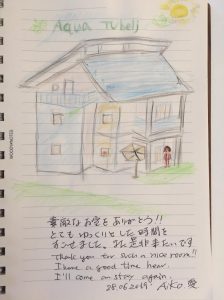 Aqua Tubelj
素敵なお宿をありがとう!!
とてもゆっくりとした時間を
すごせました。また是非来たいです
Thank you for such a nice room!!
I have a good time hear.
I'll come an stay again.
28.06.2019 Aiko 愛